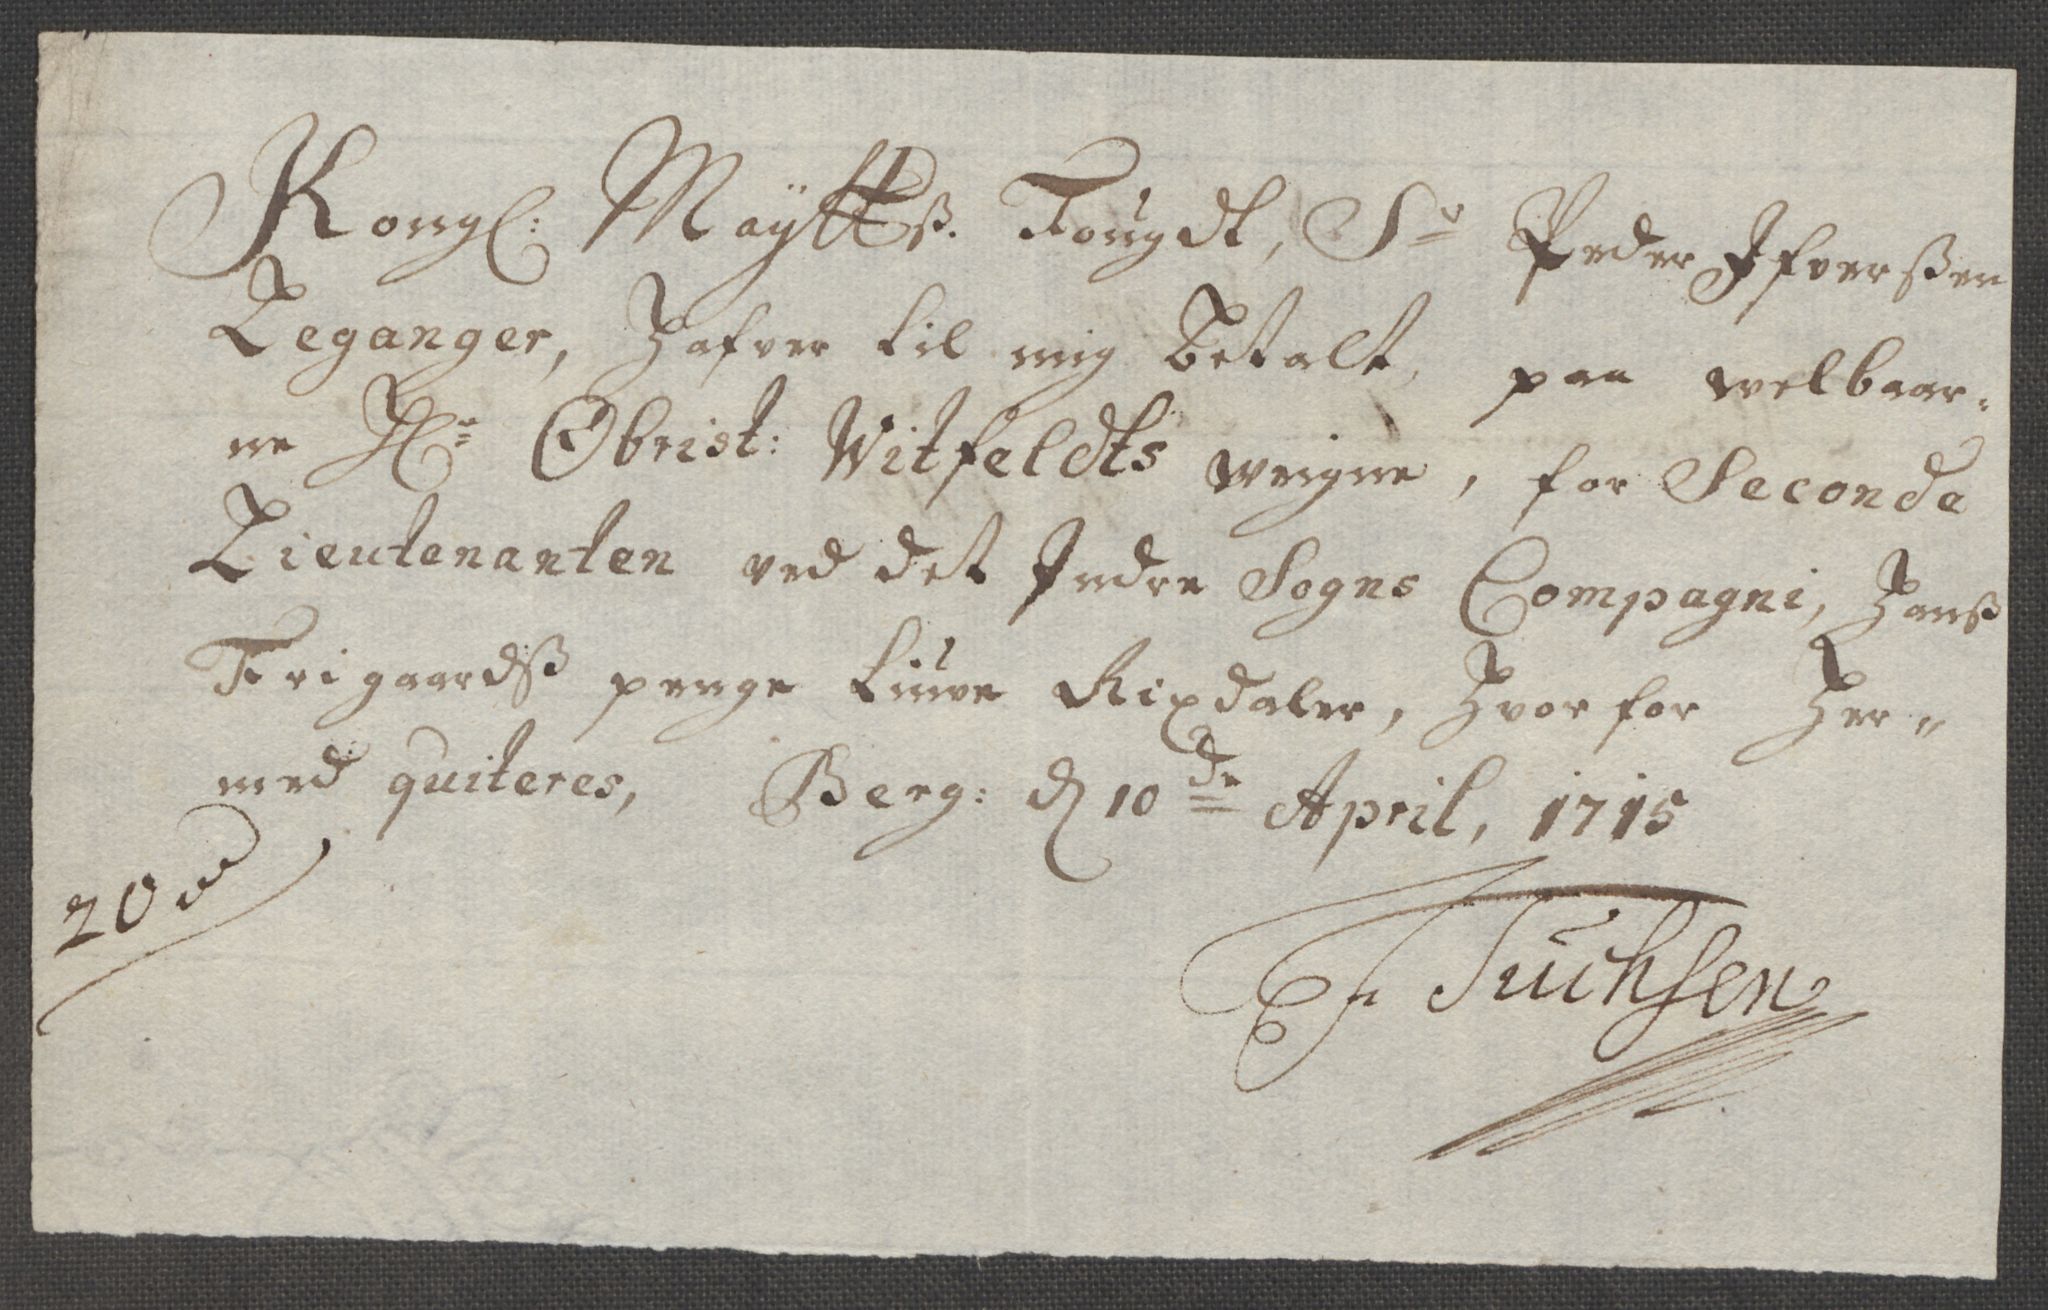 Kongl: Mayttß. Fougdt, Sr Peder Ifverßen
Leganger, Hafver til mig Betalt, paa welbaar-
ne Hr Obrist: Witfeldts weigne, for Seconde
Lieutenanten ved det Indre Sogns Compagni, Hanß
Frigaardß penge tiuve Rixdaler, Hvorfor Her-
med quiteres, Berg: d 10de April, 1715
20
Tuchsen